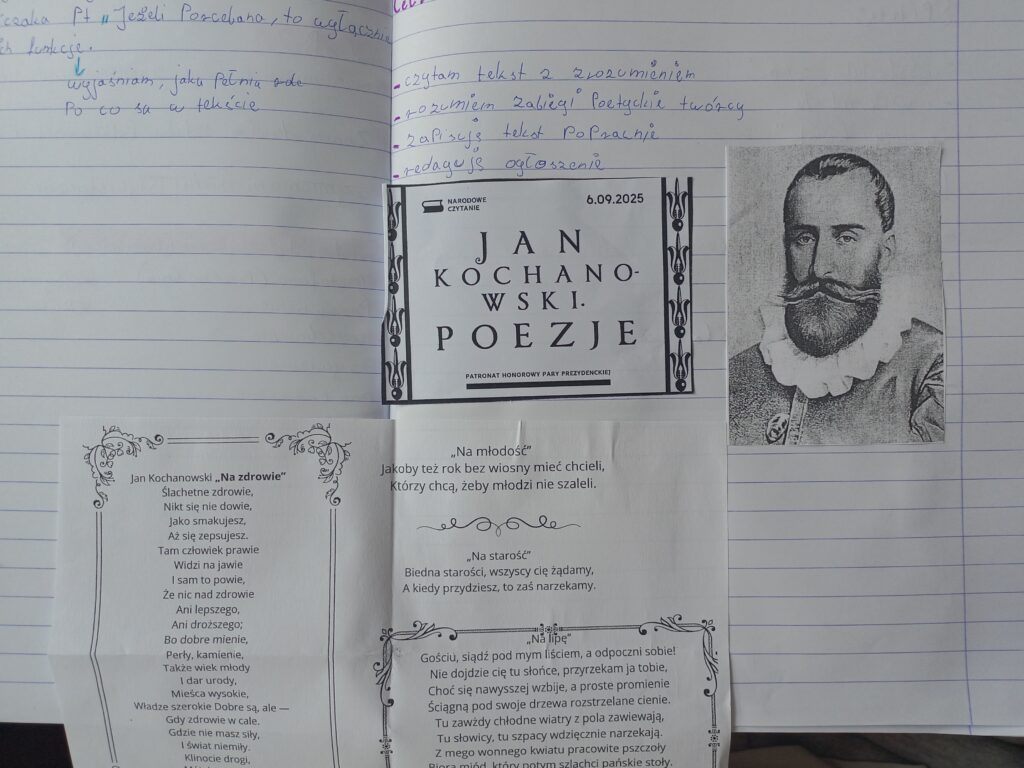 Pt „Jeżeli Porcelana, to wyłącznie
funkcję.
wyjaśniam, jaką pełnią
Po co są w tekście
- czytam tekst z zrozumieniem
- rozumiem zabiegi Poetyckie twórcy
- zapisuję tekst Poprawnie
- redaguję ogłoszenie
NARODOWE
CZYTANIE
6.09.2025
JAN
KOCHANO-
WSKI.
POEZJE
PATRONAT HONOROWY PARY PREZYDENCKIEJ
Jan Kochanowski „Na zdrowie”
Ślachetne zdrowie,
Nikt się nie dowie,
Jako smakujesz,
Aż się zepsujesz.
Tam człowiek prawie
Widzi na jawie
I sam to powie,
Że nic nad zdrowie
Ani lepszego,
Ani droższego;
Bo dobre mienie,
Perły, kamienie,
Także wiek młody
I dar urody,
Mieśca wysokie,
Władze szerokie Dobre są, ale —
Gdy zdrowie w cale.
Gdzie nie masz siły,
I świat niemiły.
Klinocie drogi,
„Na młodość”
Jakoby też rok bez wiosny mieć chcieli,
Którzy chcą, żeby młodzi nie szaleli.
„Na starość”
Biedna starości, wszyscy cię żądamy,
A kiedy przydziesz, to zaś narzekamy.
„Na lipę”
Gościu, siądź pod mym liściem, a odpoczni sobie!
Nie dojdzie cię tu słońce, przyrzekam ja tobie,
Choć się nawyszszej wzbije, a proste promienie
Ściągną pod swoje drzewa rozstrzelane cienie.
Tu zawżdy chłodne wiatry z pola zawiewają,
Tu słowicy, tu szpacy wdzięcznie narzekają.
Z mego wonnego kwiatu pracowite pszczoły
Biorą miód, który potym szlachci pańskie stoły.